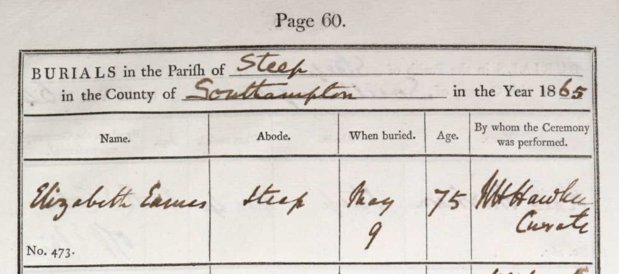 Page 60.
BURIALS in the Parish of Steep
in the County of Southampton in the Year 1865
Name. Abode. When buried. Age. By whom the Ceremony was performed.
Elizabeth Eames Steep May 9 75 Curate
No. 473.